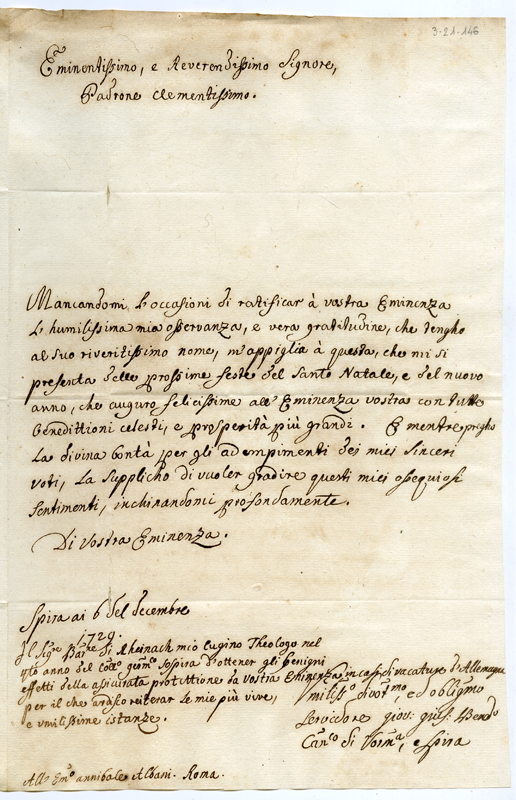 3-21-146
Eminentissimo, e Reverendissimo Signore,
Padrone Clementissimo.
Mancandomi l'occasioni di ratificar à vostra Eminenza
l'humilissima mia osservanza, e vera gratitudine, che tengho
al suo riveritissimo nome, m'appiglia à questa, che mi si
presenta delle prossime feste del Santo Natale, e del nuovo
anno, che auguro felicissime all'Eminenza vostra con tutte
benedittioni celesti, e prosperità più grandi. E mentre pregho
la divina bontà per gli adempimenti dei miei sinceri
voti, la supplicho di vuoler gradire questi miei ossequiosi
sentimenti, inchinandomi profondamente.
Di Vostra Eminenza.
Spira ai 6 del decembre
1729.
Il Sigre Barne di Rheinach mio cugino Theologo nel
anno del sospira d'ottener gli benigni
effetti della asicurata protettione da vostra Eminenza in casi di vacature d'Allemagna
per il che ardisco reiterar le mie più vive,
e umilissime istanze.
milissº divotmo, ed obligmo
Servidore giov: gius:
Canco di Vormª, e Spira
All' Emº annibale Albani. Roma.